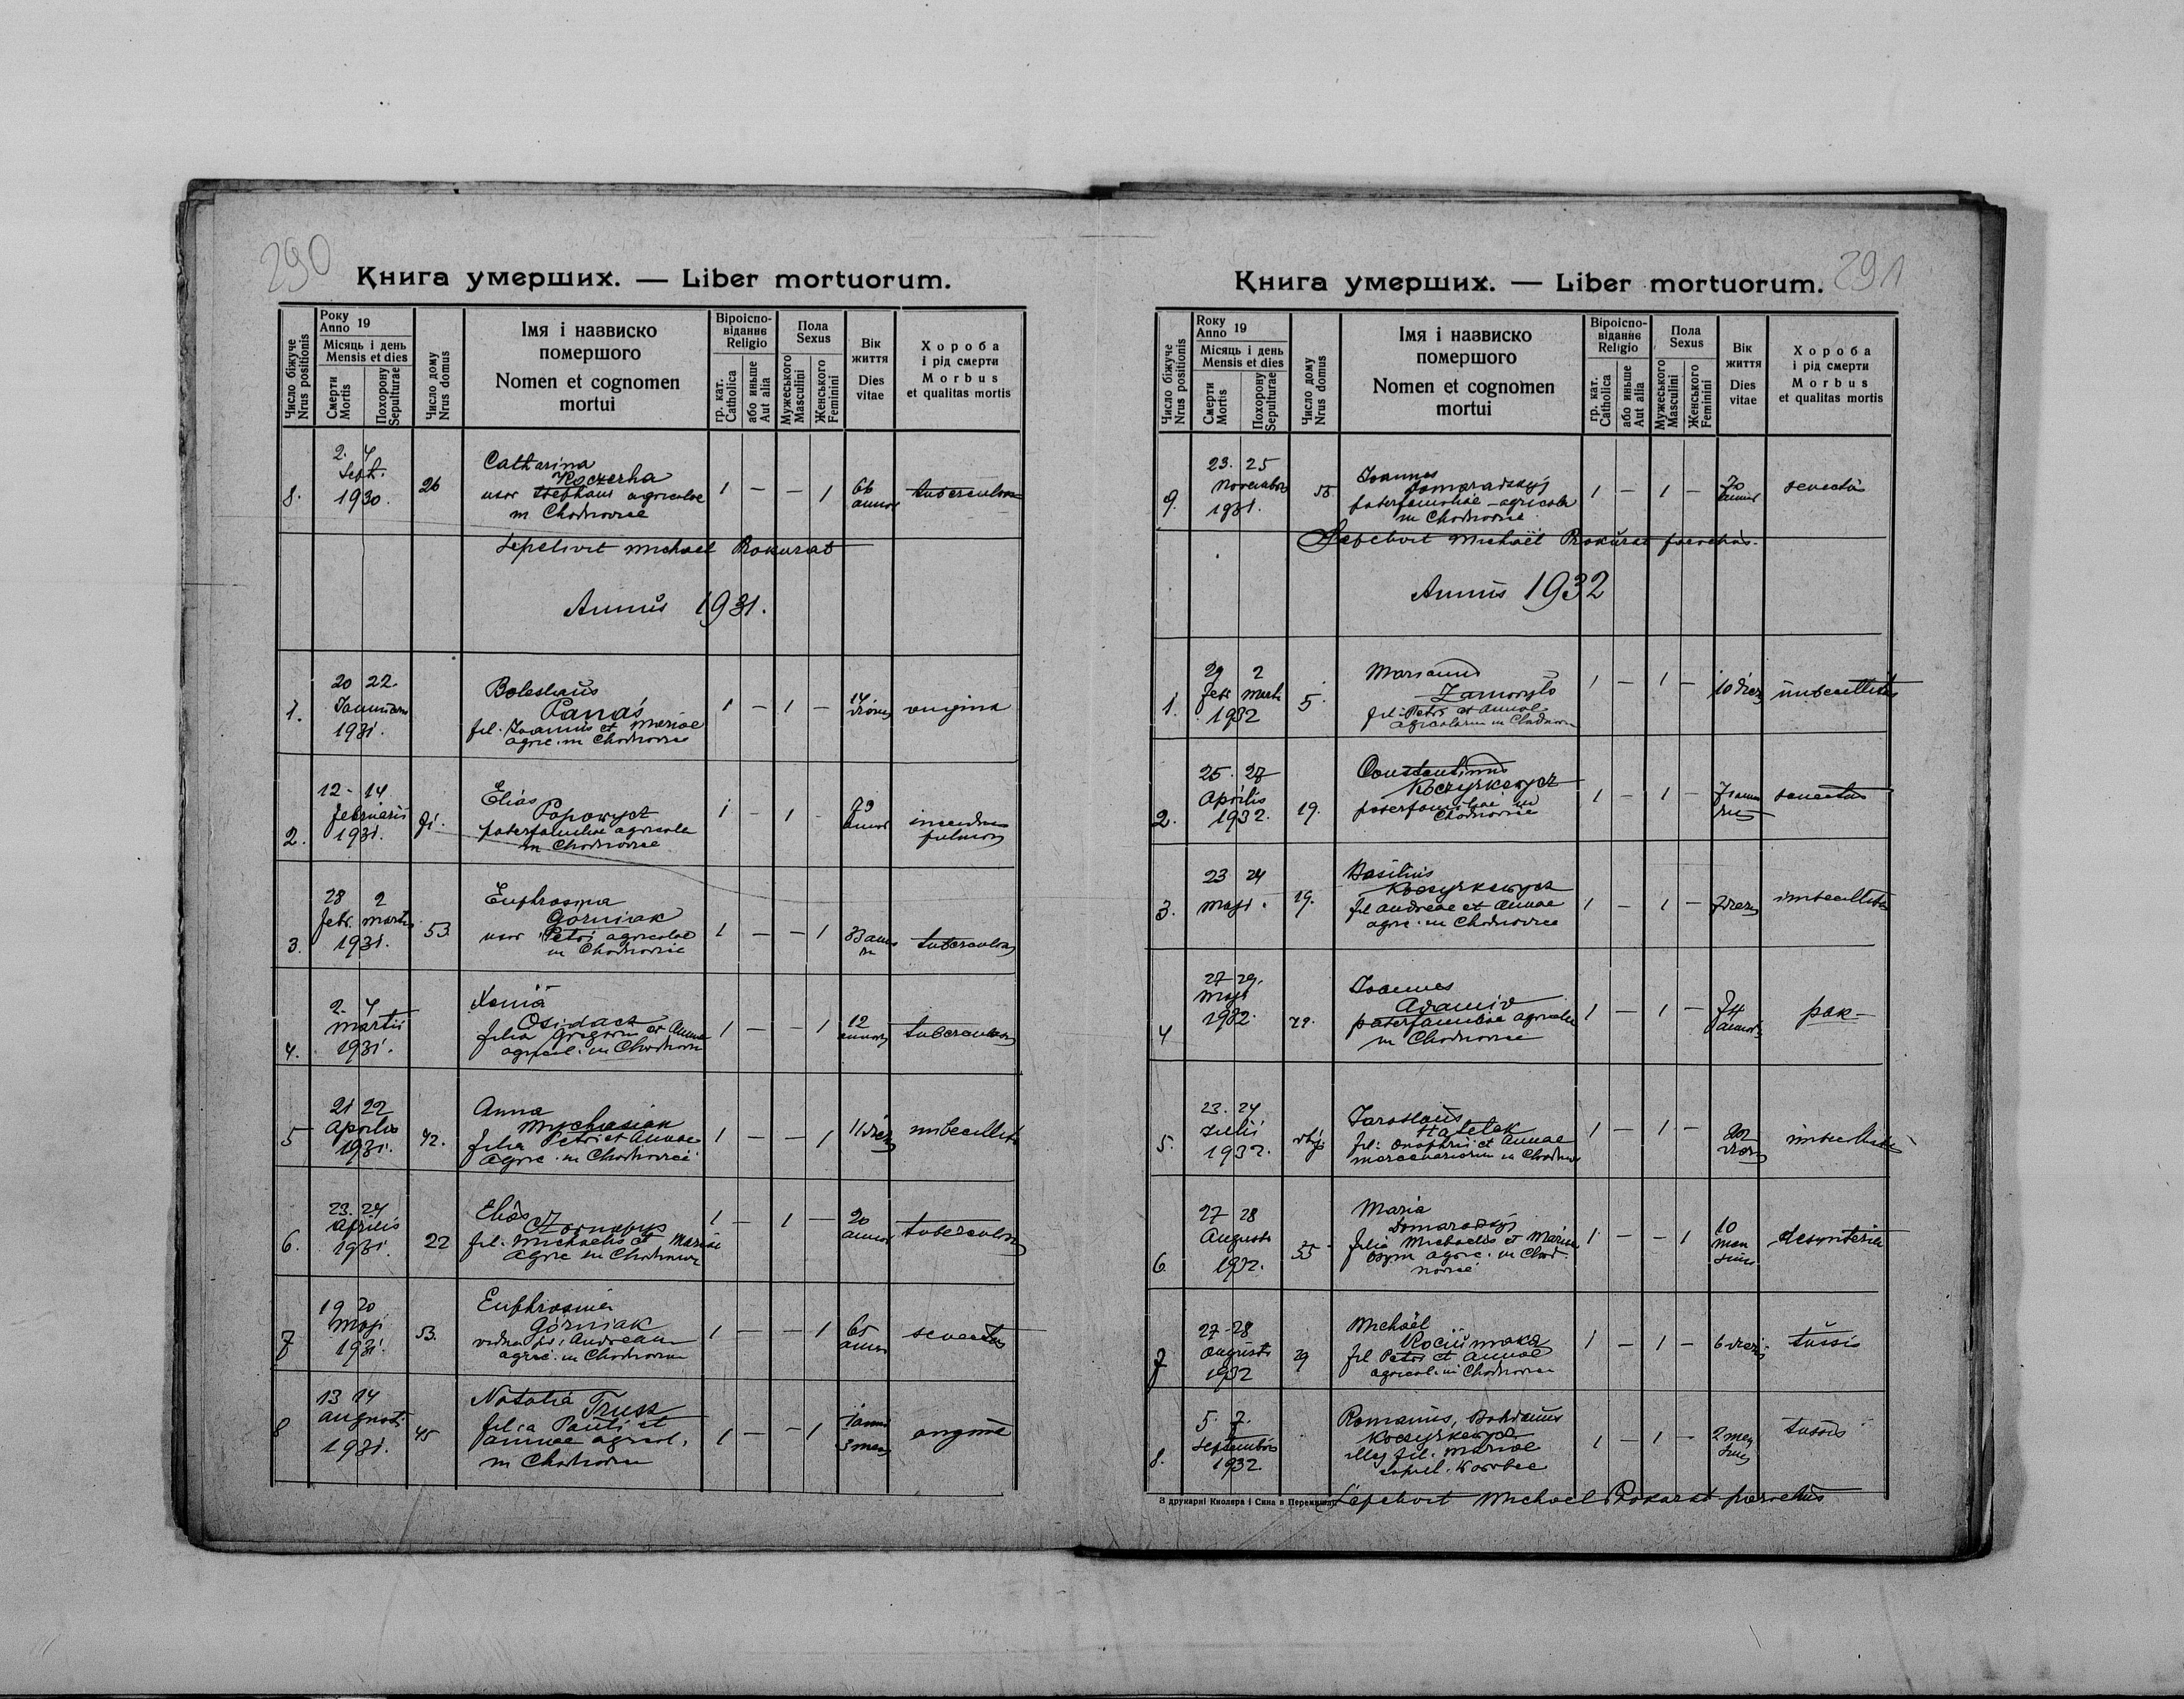 290
Книга умерших. — Liber mortuorum.
Число біжуче
Nrus positionis
Року
Anno 19
Місяць і день
Mensis et dies
Смерти
Mortis
Похорону
Sepulturae
Число дому
Nrus domus
Імя і назвиско
помершого
Nomen et cognomen
mortui
Віроіспо-
віданнє
Religio
гр. кат.
Catholica
або иньше
Aut alia
Пола
Sexus
Мужеського
Masculini
Женського
Feminini
Вік
життя
Dies
vitae
Хороба
і рід смерти
Morbus
et qualitas mortis
8.
2. 4
Sept.
1930.
26
Catharina
Koczerha
uxor Stephani agricolae
in Chodnowice
1 — — 1
66
annor
tuberculosa
Sepelivit Michael Prokurat
Annus 1931.
1.
20 22.
Januarii
1931.
Boleslaus
Panaś
fil. Joannis et Mariae
agric. in Chodnowice
1 — 1 —
14
dierum
angina
2.
12 - 14
februarii
1931.
71.
Elias
Popowycz
paterfamiliae agricola
in Chodnowice
1 - 1 -
73
annor
3.
28 2
febr. martii
1931.
53.
Euphrosina
Górniak
uxor Petri agricolae
in Chodnowice
1 — — 1
33 anno
tuberculosa
4.
2. 4
martii
1931.
Xenia
Osidacz
filia Gregorii et Annae
agricol. in Chodnowice
1 — — 1
12
annor
tuberculosa
5
21 22
Aprilis
1931.
42.
Anna
Mychasiak
filia Petri et Annae
agric. in Chodnowice
1 — — 1
11 dier
imbecillitas
6.
23. 24
Aprilis
1931.
22
Elias
Czornopys
fil. Michaelis et Mariae
agric in Chodnowice
1 — 1 —
20
annor
tuberculosa
7
19 20
Maji
1931.
53.
Euphrosina
Górniak
vidua p. Andream
agric. in Chodnowice
1 — — 1
65
annor
senectus
8
13 14
augusti
1931.
45
Natalia Trusz
filia Pauli et
Annae agricol.
in Chodnowice
1 — — 1
1 anni
3 men
angina
291
Книга умерших. — Liber mortuorum.
Число біжуче
Nrus positionis
Року
Anno 19
Місяць і день
Mensis et dies
Смерти
Mortis
Похорону
Sepulturae
Число дому
Nrus domus
Імя і назвиско
помершого
Nomen et cognomen
mortui
Віроіспо-
віданнє
Religio
гр. кат.
Catholica
або иньше
Aut alia
Пола
Sexus
Мужеського
Masculini
Женського
Feminini
Вік
життя
Dies
vitae
Хороба
і рід смерти
Morbus
et qualitas mortis
9.
23. 25
novembris
1931.
Joannes
Domaradzkyj
paterfamiliae - agricola
in Chodnowice
1 — 1 —
70
annor
senectus
Sepelivit Michaël Prokurat parochus.
Annus 1932
1.
29 2
febr. martii
1932
5.
fil. Petri et Annae
agricolarum in Chodnow
1 — 1 —
10 dier
imbecillitas
2.
25. 27
Aprilis
1932.
19.
Constantinus
Koczyrkewycz
paterfamiliae in
Chodnowice
1 — 1 —
senectus
3.
23 24
maji.
19.
Basilius
Koczyrkewycz
fil Andreae et Annae
agric. in Chodnowice
1 — 1 —
7 dier
imbecillitas
4
27 29.
Maji
1932.
72.
Joannes
Adamiv
paterfamiliae agricola
in Chodnowice
1 — 1 —
74
annor
рак —
5.
23. 24
Julii
1932.
Jaroslaus
Hatełak
fil. Onophrii et Annae
mercenariorum in Chodnow
1 — 1 —
dier
imbecillitas
6
27 28
Augusti
1932.
55
Maria
Domaradzkyj
filia Michaelis et Mariae
agric. in Chod-
nowice
1 — — 1
10
men
sium
desynteria
7
27-28
Augusti
1932
29
Michaël
fil Petri et Annae
agricol. in Chodnowice
1 — 1 —
6 dier.
tussis
8.
5. 7.
Septembris
1932.
Romanus, Bohdanus
Koczyrkewycz
illeg fil. Mariae
1 — 1 —
2 men
sium
tussis
З друкарні Кнолера і Сина в Перемишли
Sepelivit Michael Prokurat parochus